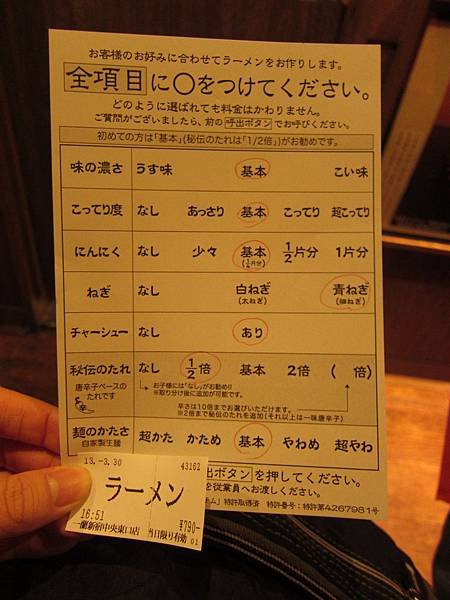 お客様のお好みに合わせてラーメンをお作りします。
全項目に○をつけてください。
どのように選ばれても料金はかわりません。
ご質問がございましたら、前の呼出ボタンでお呼びください。
初めての方は「基本」(秘伝のたれは「1/2倍」)がお勧めです。
味の濃さ うす味 基本 こい味
こってり度 なし あっさり 基本 こってり 超こってり
にんにく なし 少々 基本 1/2片分 1片分
(1/4片分)
ねぎ なし 白ねぎ 青ねぎ
(太ねぎ) (細ねぎ)
チャーシュー なし あり
秘伝のたれ なし 1/2倍 基本 2倍 ( 倍)
唐辛子ベースの
たれです
お子様には「なし」がお勧め!!
※取り分け後に追加が可能です。
辛さは10倍までお選びいただけます。
※2倍まで秘伝のたれを追加(それ以上は一味唐辛子)
麺のかたさ 超かた かため 基本 やわめ 超やわ
自家製生麺
出ボタンを押してください。
を従業員へお渡しください。
特許取得済 特許番号:特許第4267981号
13.-3.30 43162
ラーメン
16:51 ¥790-
一蘭新宿中央東口店 当日限り有効 01